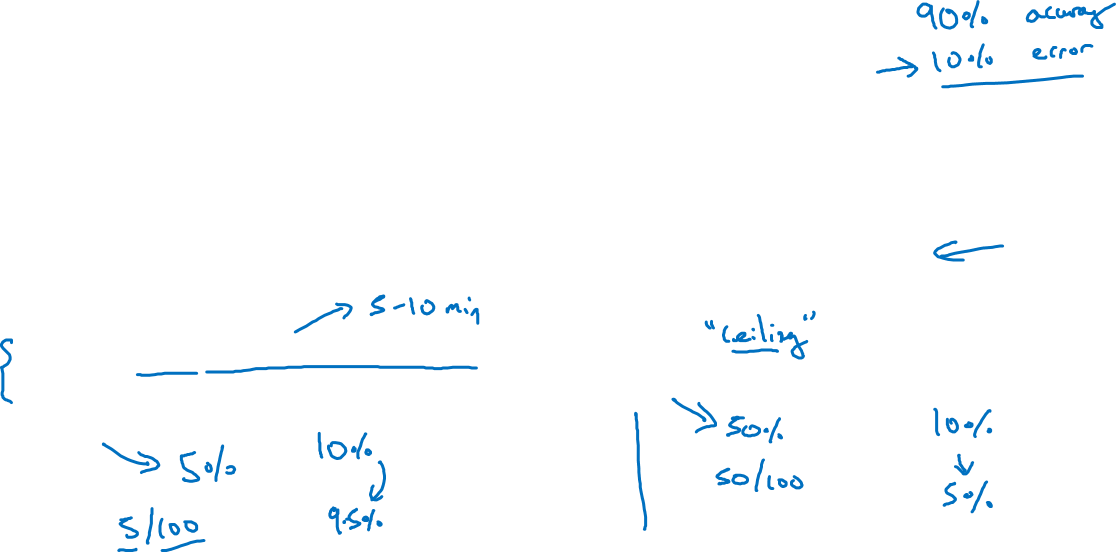 90% accuracy
→ 10% error
5-10 min
"ceiling"
5% 10%
5/100 9.5%
50% 10%
50/100 5%